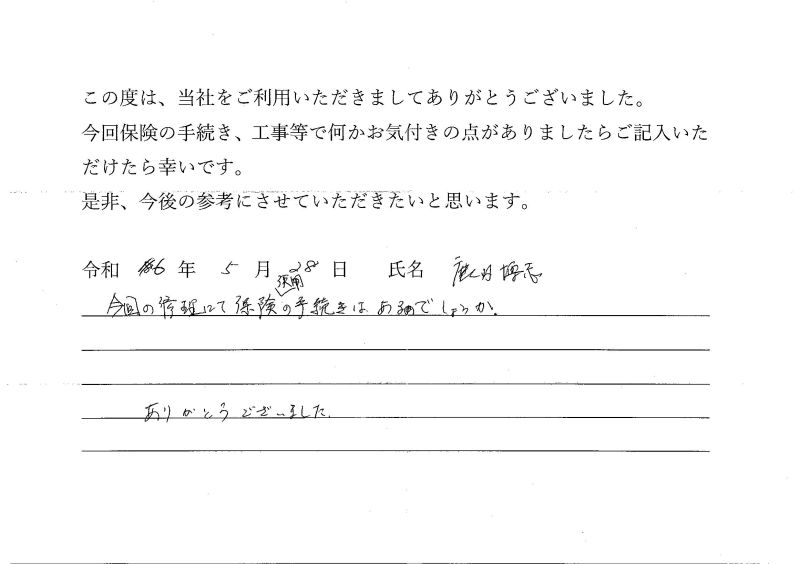 この度は、当社をご利用いただきましてありがとうございました。
今回保険の手続き、工事等で何かお気付きの点がありましたらご記入いた
だけたら幸いです。
是非、今後の参考にさせていただきたいと思います。
令和 6 年 5 月 28 日 氏名
使用
今回の修理にて保険の手続きはあるのでしょうか。
ありがとうございました。